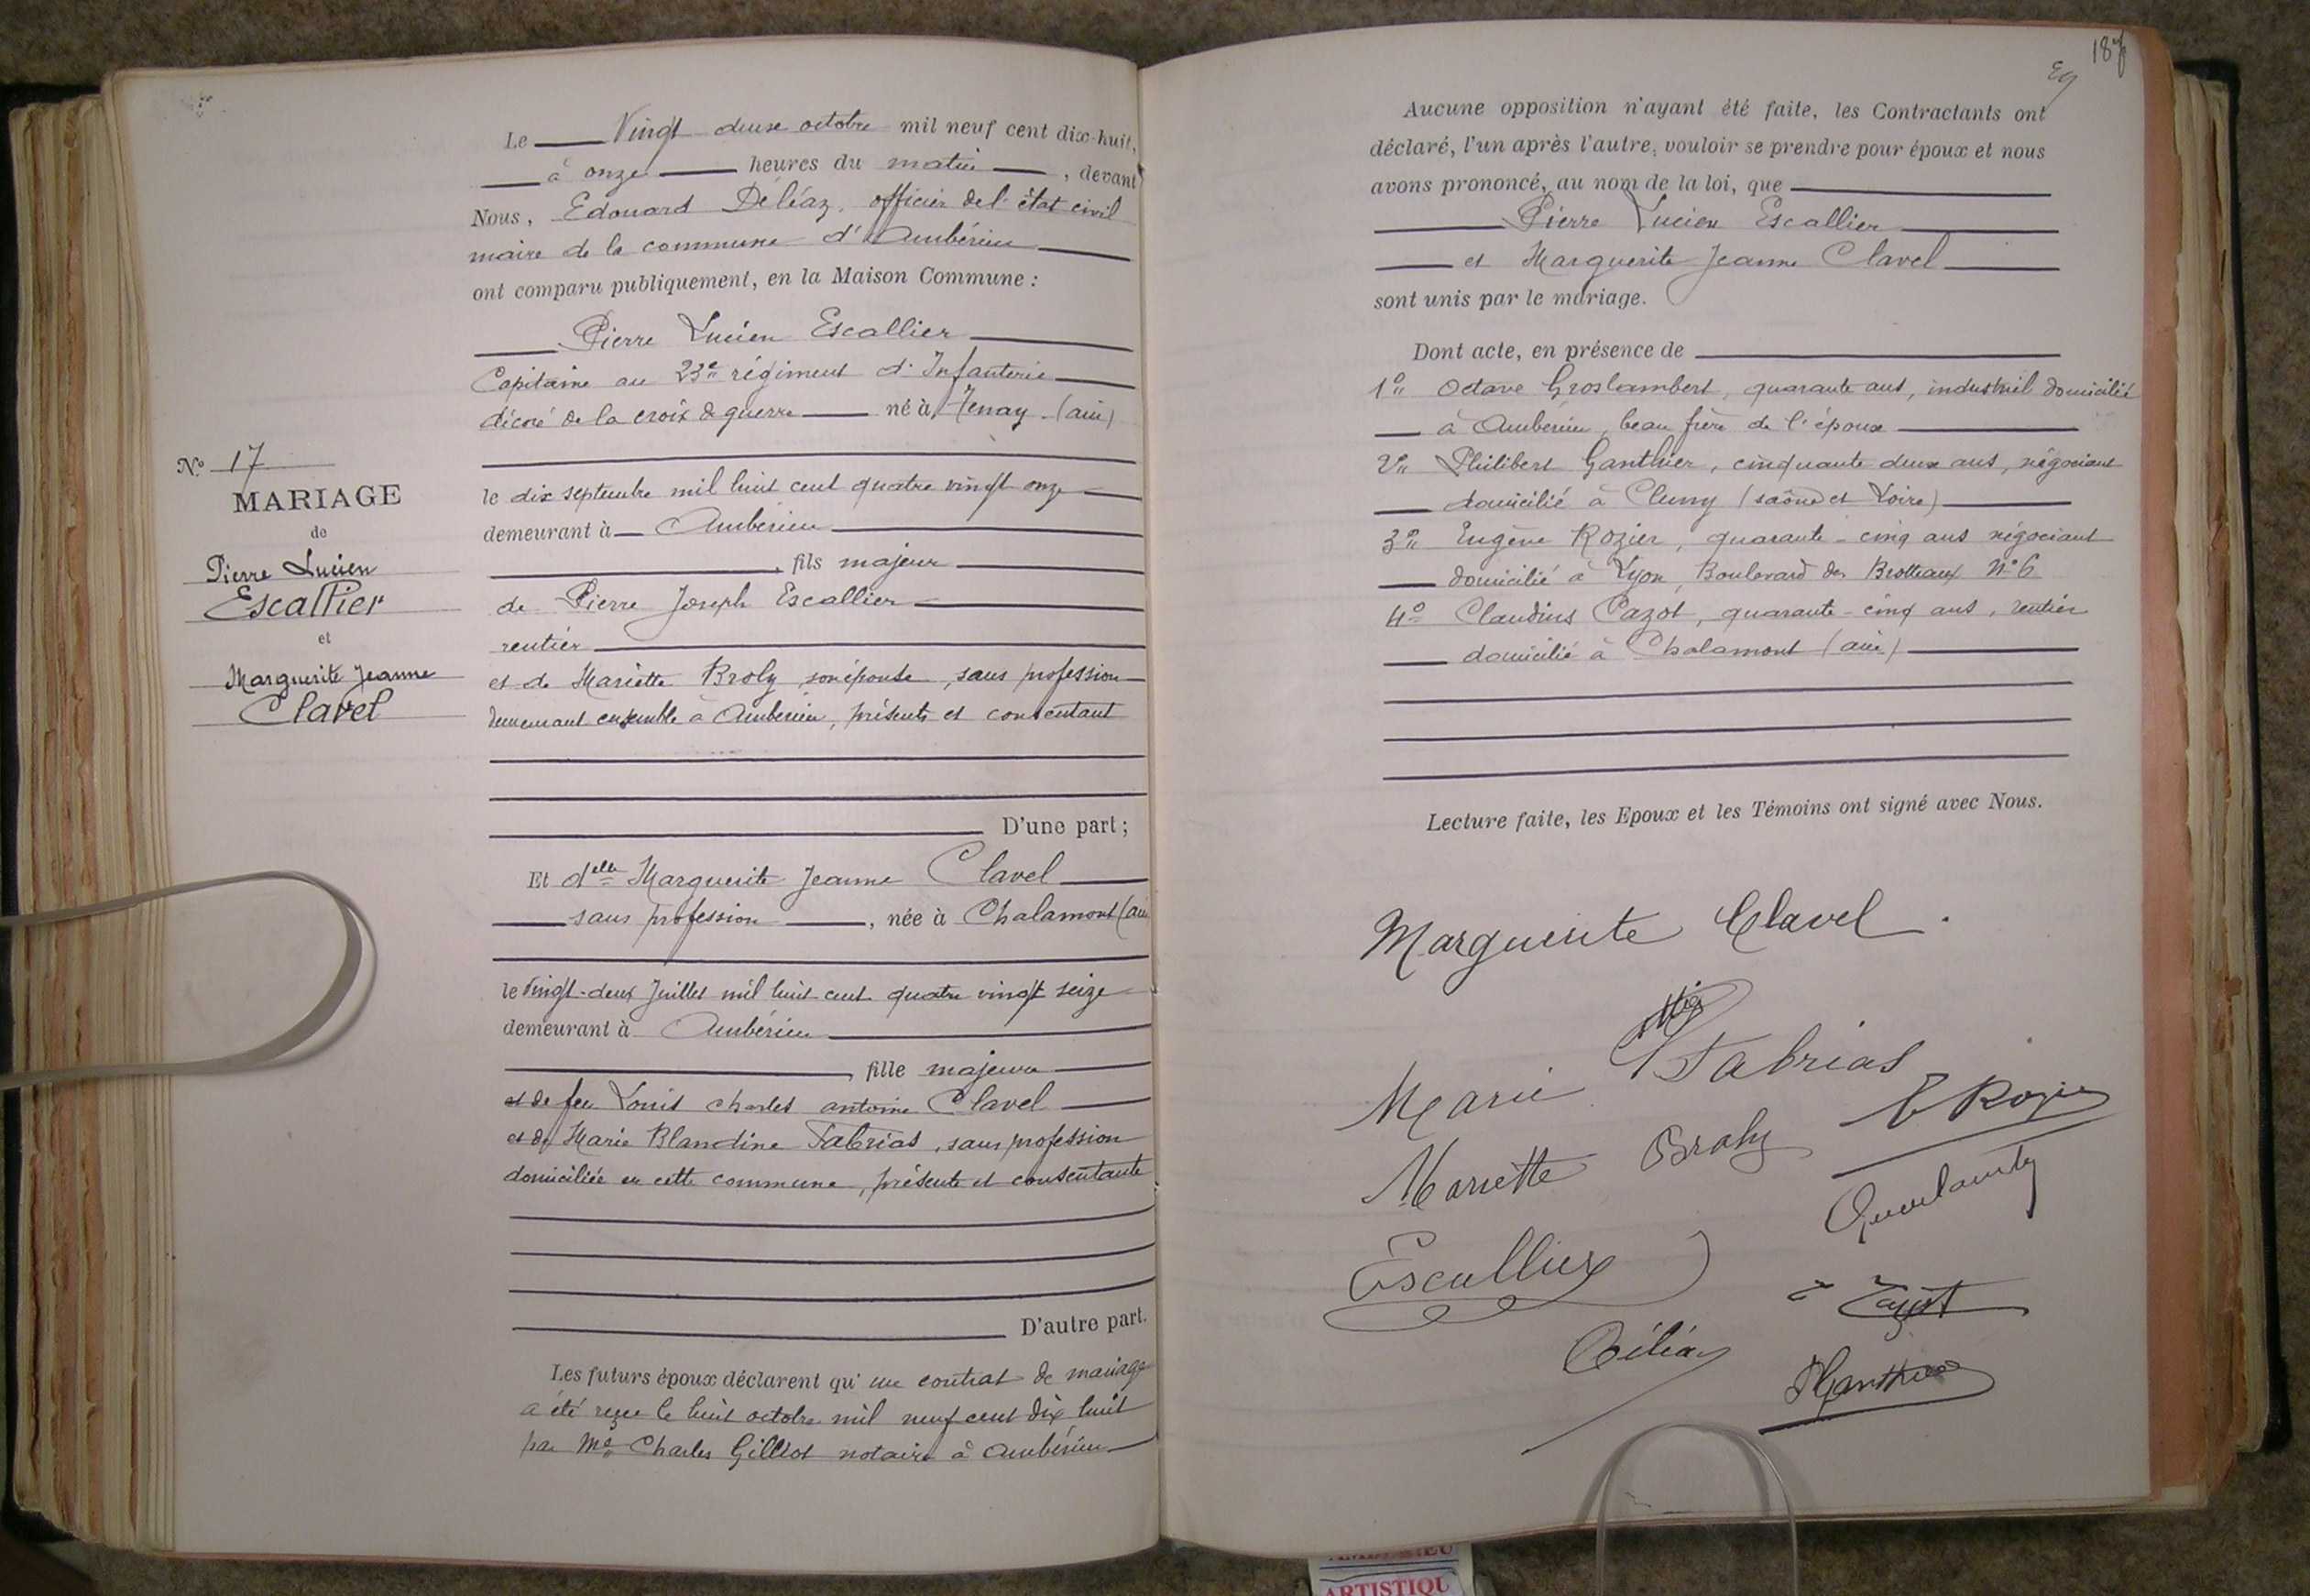 Le Vingt deux octobre mil neuf cent dix-huit,
à onze heures du matin, devant
Nous, Edouard Déléaz, officier de l'état civil
maire de la commune d'Ambérieu
ont comparu publiquement, en la Maison Commune :
Pierre Lucien Escallier
Capitaine au 23e régiment d'Infanterie
décoré de la croix de guerre né à Tenay (ain)
le dix septembre mil huit cent quatre vingt onze
demeurant à Ambérieu
, fils majeur
de Pierre Joseph Escallier
rentier
et de Mariette Broly son épouse, sans profession
demeurant ensemble à Ambérieu, présents et consentant
D'une part ;
Et delle Marguerite Jeanne Clavel
sans profession, née à Chalamont (ain
le Vingt-deux Juillet mil huit cent quatre vingt seize
demeurant à Ambérieu
, fille majeure
et de feu Louis Charles antoine Clavel
et de Marie Blandine Fabrias, sans profession
domiciliée en cette commune, présente et consentante
D'autre part.
Les futurs époux déclarent qu'un contrat de mariage
a été reçu le huit octobre mil neuf cent dix huit
par Me Charles Gilliot notaire à Ambérieu
No 17
MARIAGE
de
Pierre Lucien
Escallier
et
Marguerite Jeanne
Clavel
18
Aucune opposition n'ayant été faite, les Contractants ont
déclaré, l'un après l'autre, vouloir se prendre pour époux et nous
avons prononcé, au nom de la loi, que
Pierre Lucien Escallier
et Marguerite Jeanne Clavel
sont unis par le mariage.
Dont acte, en présence de
1o Octave Groslambert, quarante ans, industriel domicilié
à Ambérieu, beau frère de l'époux
2o Philibert Ganthier, cinquante deux ans, négociant
domicilié à Cluny (saône et Loire)
3o Eugène Rozier, quarante-cinq ans négociant
domicilié à Lyon, Boulevard des Brotteaux No 6
4o Claudius Cazot, quarante-cinq ans, rentier
domicilié à Chalamont (ain)
Lecture faite, les Epoux et les Témoins ont signé avec Nous.
Marguerite Clavel
Marie Fabrias
E Rozier
Mariette Broly
Escallier
Déléaz
P Ganthier
ARTISTIQU